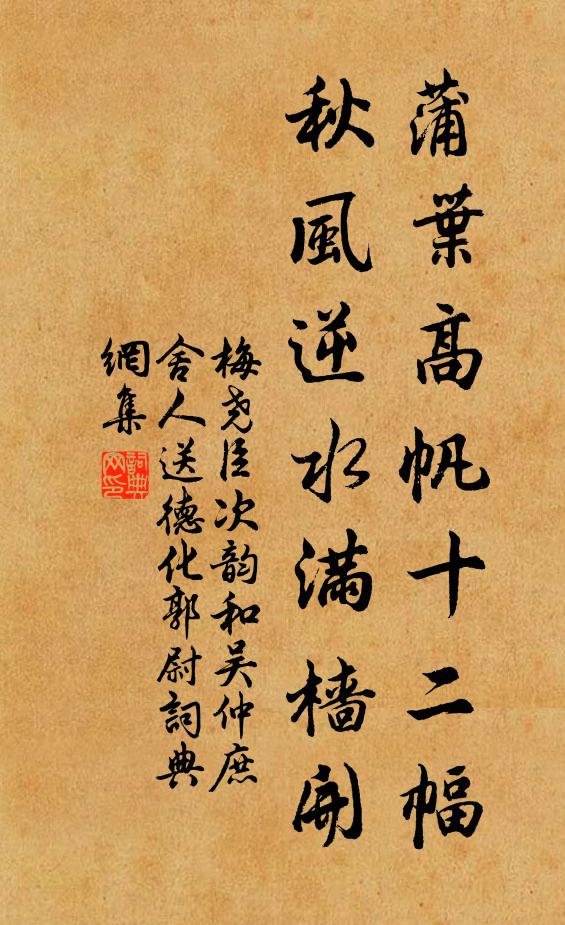 蒲葉高帆十二幅
秋風逆水滿檣開
梅尧臣次韵和吴仲庶
舍人送德化郭尉詞典
網集
詞典
网印